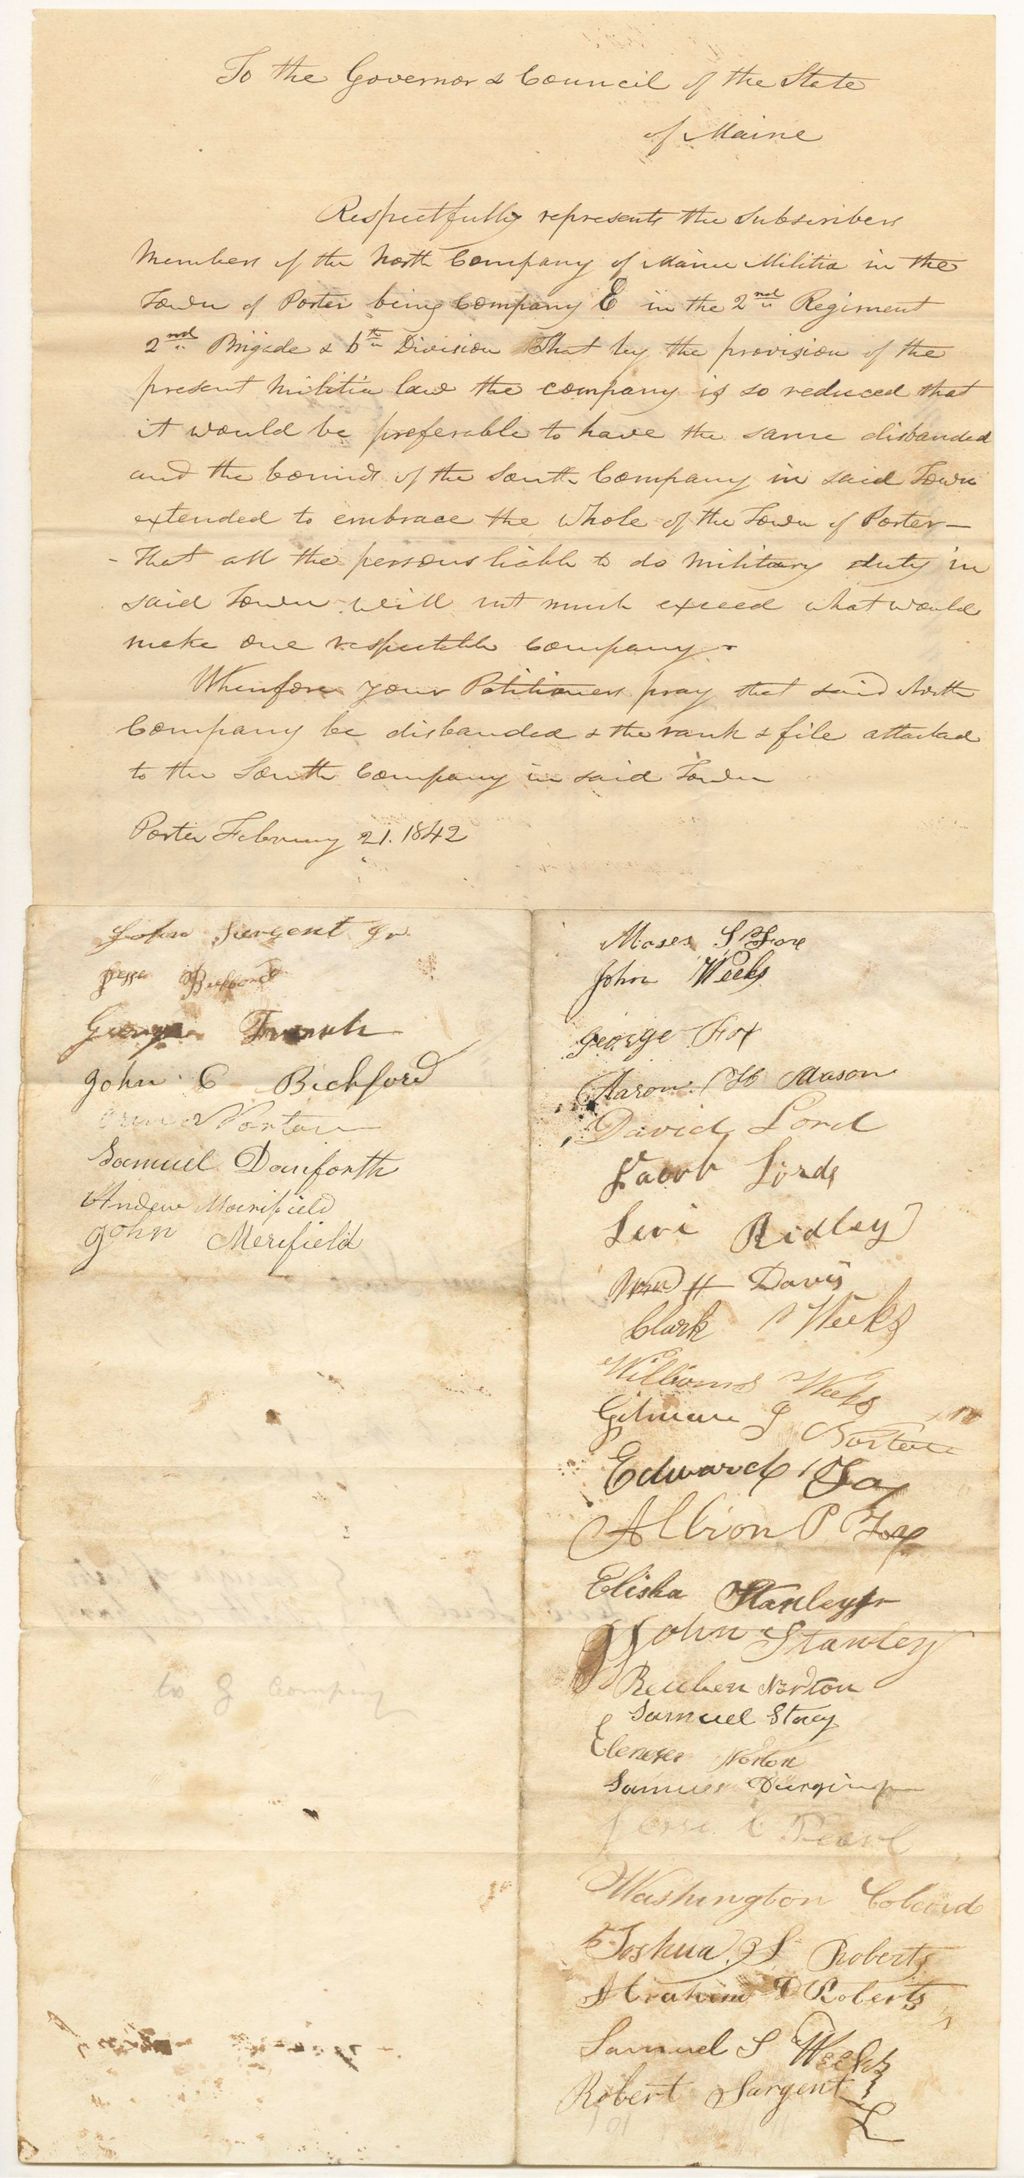 To the Governor & Council of the State
of Maine
Respectfully represents the Subscribers
Members of the North Company of Maine Militia in the
Town of Porter being Company E in the 2nd Regiment
2nd Brigade & 6th Division That by the provision of the
present Militia law the company is so reduced that
it would be preferable to have the same disbanded
and the bounds of the South Company in said Town
extended to embrace the whole of the Town of Porter—
- That all the persons liable to do military duty in
said Town will not much exceed what would
make one respectable Company.
Wherefore your Petitioners pray that said North
Company be disbanded & the rank & file attached
to the South Company in said Town
Porter February 21. 1842
John Sargent Jr
Jesse Bickford
George French
John C Bickford
Norton
Samuel Danforth
Andrew Merrifield
John Merifield
to g Company
Moses S Fox
John Weeks
George Fox
Aaron H Mason
David Lord
Jacob Lords
Levi Ridley
H Davis
Clark Weeks
William Weeks
Gilman J Norton
Edward Fox
Albion P Fox
Elisha Stanley jr
John Stanley
Reuben Norton
Samuel Stacy
Ebenezer Norton
Samuel Durgin
Jesse C Pearl
Washington Colcord
Joshua S Roberts
Abraham D Roberts
Samuel S Weeks
Robert Sargent